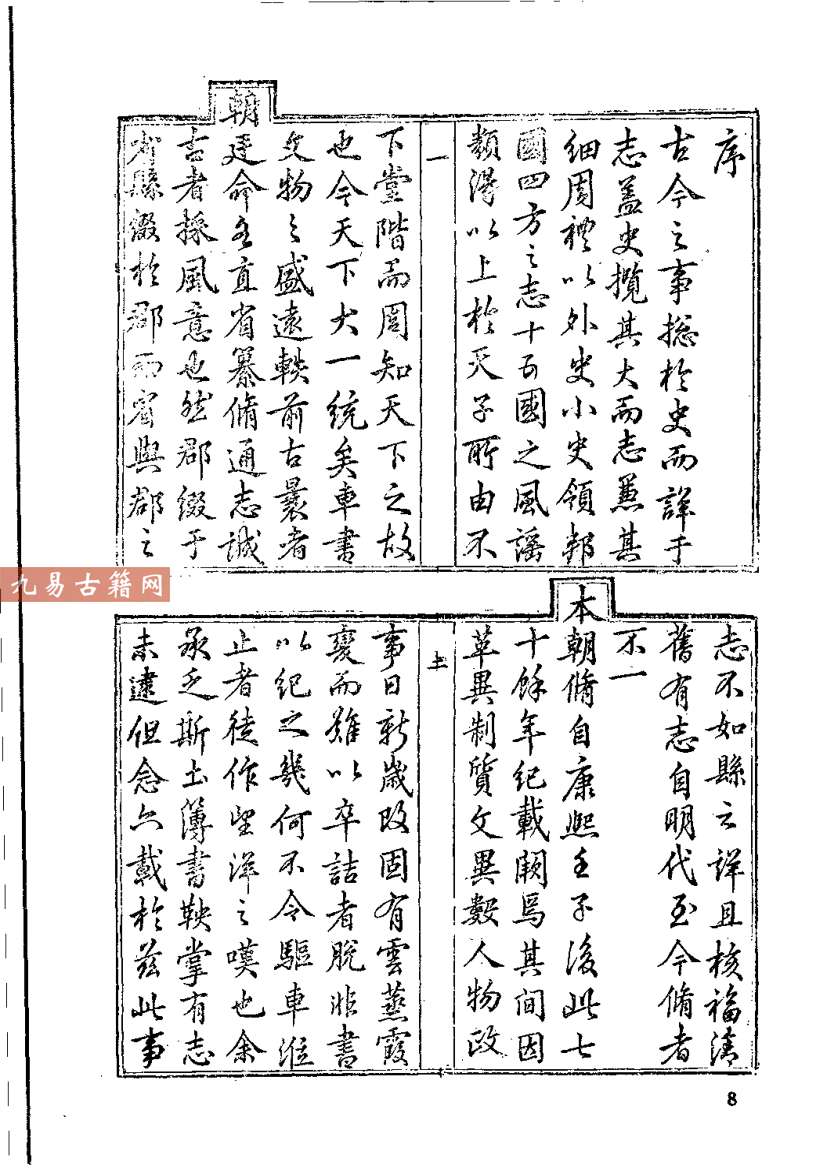 序
古今之事揔於史而詳于
志盖史攬其大而志悉其
細周禮以外史小史領邦
國四方之志十五國之風謡
類得以上於天子所由不
一
下堂階而周知天下之故
也今天下大一統矣車書
文物之盛遠軼前古曩者
朝廷命各直省纂脩通志誠
古者採風意也然郡綴于
省縣綴於郡而省與郡之
志不如縣之詳且核福清
舊有志自明代至今脩者
不一
本朝脩自康熙壬子後此七
十餘年紀載闕焉其間因
革異制質文異數人物政
事日新歲改固有雲蒸霞
變而難以卒詰者脫非書
以紀之幾何不令驅車涖
止者徒作望洋之嘆也余
承乏斯土簿書鞅掌有志
未逮但念六載於兹此事
九易古籍网
8